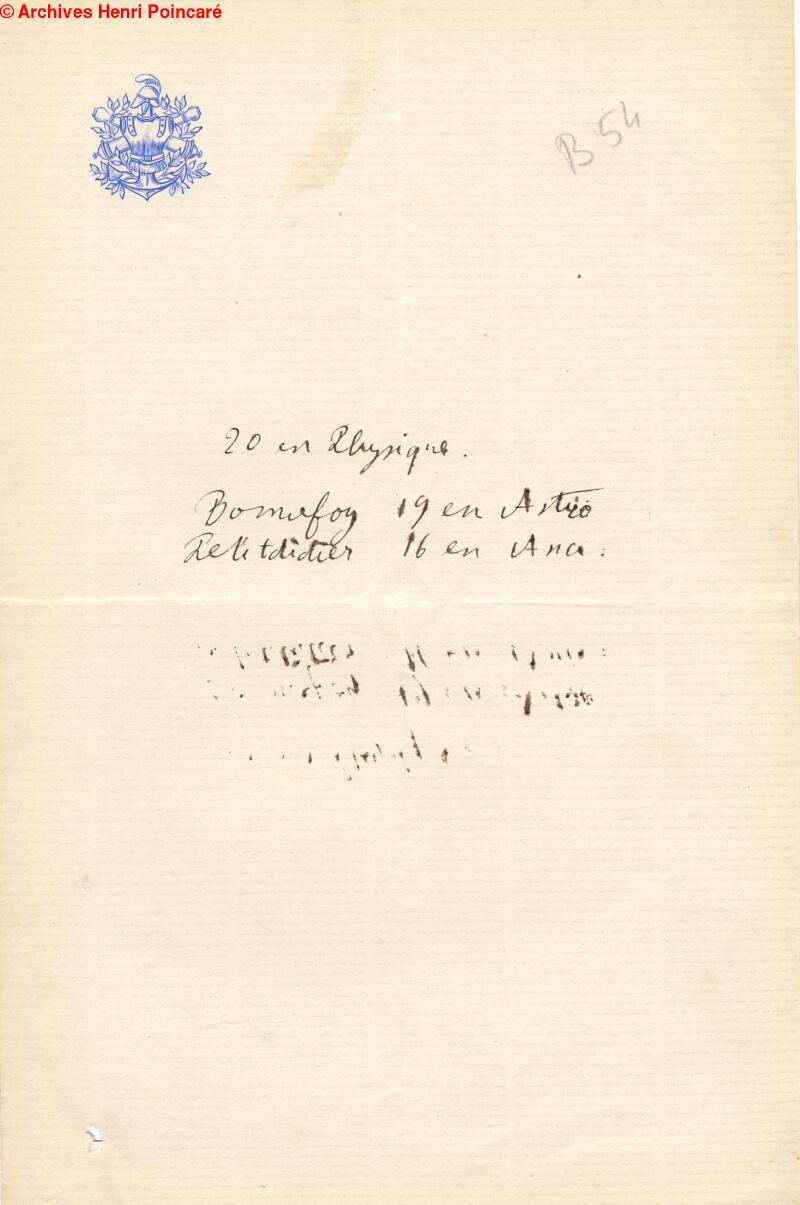 © Archives Henri Poincaré
B 54
20 en Physique.
Bonnefoy 19 en Astro
Petitdidier 16 en Ana: